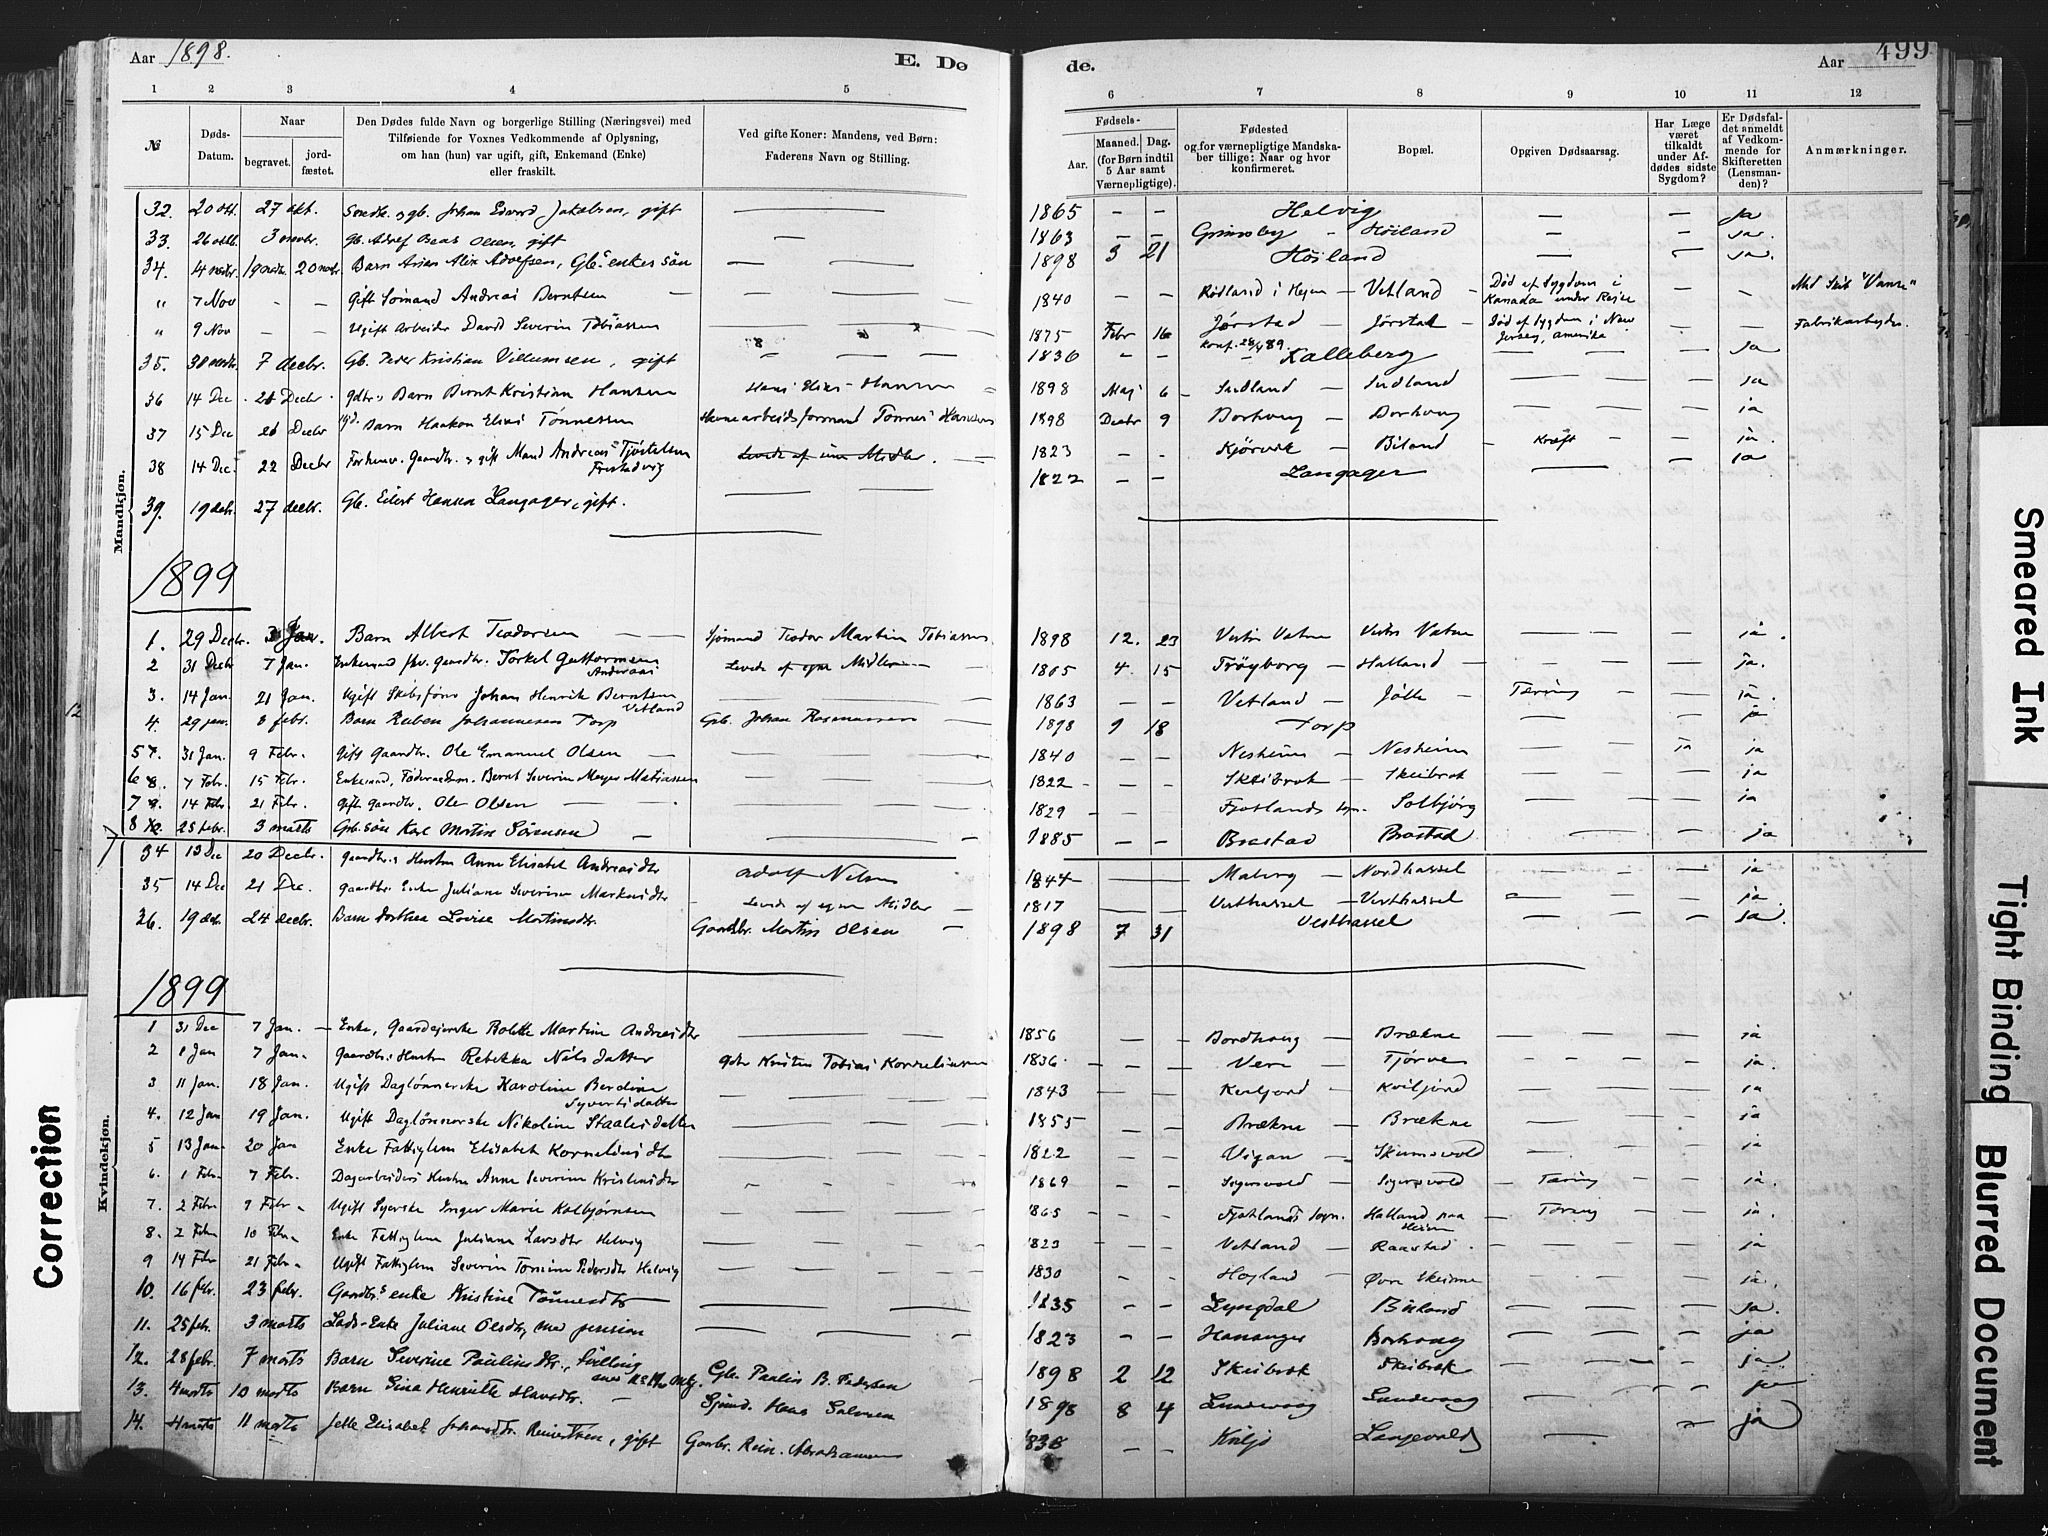 Aar 1898. E. Dø de. Aar 499
1 2 3 4 5 6 7 8 9 10 11 12
№
Døds-Datum.
Naar
begravet.
jordfæstet.
Den Dødes fulde Navn og borgerlige Stilling (Næringsvei) med
Tilføiende for Voxnes Vedkommende af Oplysning,
om han (hun) var ugift, gift, Enkemand (Enke)
eller fraskilt.
Ved gifte Koner: Mandens, ved Børn:
Faderens Navn og Stilling.
Fødsels-
Aar.
Maaned. Dag.
(for Børn indtil
5 Aar samt
Værnepligtige).
Fødested
og for værnepligtige Mandska-
ber tillige: Naar og hvor
konfirmeret.
Bopæl.
Opgiven Dødsaarsag.
Har Læge
været
tilkaldt
under Af-
dødes sidste
Sygdom?
Er Dødsfal-
det anmeldt
af Vedkom-
mende for
Skifteretten
(Lensman-
den)?
Anmærkninger.
Mandkjøn.
32. 20 okt. 27 okt. Johan Edvard Jakobsen, gift — 1865 — — Helvig — — ja
33. 26 oktb. 3 novbr. Gb. Olsen, gift — 1863 — — Grimsby — Høiland — — ja.
34. 14 novbr. 19 novbr. 20 novbr. Barn Alix Adolfsen, enkes søn — 1898 3 21 Høiland — — ja.
" 7 Nov — — Gift Sømand Andreas Berntsen — 1840 — — Rødland i — Vetland — Død af Sygdom i Kanada under Reise — — Med Skib "Vanse"
" 9 Nov — — Ugift Arbeider David Severin Tobiassen — 1875 Febr 16 Jørstad — Jørstad — Død af Sygdom i New Jersey, Amerika — — Fabrikarbeider.
35. 30 novbr. 7 decbr. Gb. Peder Kristian Villumsen, gift — 1836 — — Kalleberg — — ja
36 14 Dec 21 Decbr Gdbr.s Barn Bernt Kristian Hansen Hans Elias Hansen 1898 Maj 6 Sudland — Sudland — — ja
37 15 Dec 21 Decbr Barn Haakon Elias Tønnessen Havnearbeidsformand Tønnes Hansen 1898 Decbr 9 Borhoug — Borhoug — — ja
38 14 Dec 22 Decbr Forhenv. Gaardbr. gift Mand Andreas Tjøstelsen Levede af sine Midler. 1823 — — Kjørvik — Biland — Kræft — — ja.
39. 19 decbr. 27 decbr. Gb. Eilert Hansen Langager, gift. — 1822 — — Langager — — ja
1899
1. 29 Decbr. 3 Jan. Barn Albert Teodorsen — Sjømand Teodor Martin Tobiassen 1898 12. 23 Vestre Vatne Vestre Vatne — — ja.
2 31 Decbr 7 Jan. Enkemand fhv. gaardbr. Torkel Guttormsen Levede af egne Midler — 1805 4. 15 Trøyborg — Halland — — ja.
3. 14 Jan. 21 Jan. Ugift Skibsfører Johan Henrik Berntsen Vetland — 1863 — — Vetland — Jølle — Tæring — — ja.
4. 29 jan. 8 febr. Barn Ruben Johannesen Torp Gb. Johan Rasmussen 1898 9 18 Torp — — ja
5 31 Jan. 9 Febr. Gift Gaardbr. Ole Emanuel Olsen — 1840 — — Nesheim — Nesheim — ja ja
6 7 Febr. 15 Febr. Enkemand, Føderaadsm. Bernt Severin Meyer Matiassen — 1822 — — Skeibrok — Skeibrok — — ja
7 14 Febr. 21 Febr. Gift gaardbr. Ole Olsen — 1829 — — Fjotlands sogn. — Solbjørg — — ja
8 25 febr. 3 marts Gb. søn Karl Martin Sørensen — 1885 — — Brastad Brastad — — ja
Kvindekjøn.
34 13 Dec 20 Decbr. Gaardbr.s Hustru Anne Elisabet Andreasdtr Adolf Nilsen 1844 — Maberg — Nordhassel — — ja
35 14 Dec 21 Dec. Gaardbr. Enke Juliane Severine Markusdtr — Levede af egne Midler 1817 — Vesthassel — Vesthassel — — ja.
36. 19 decbr 24 decbr. Barn Dorthea Lovise Martinsdtr. Gaardbr. Martin Olsen 1898 7 31 Vesthassel — — ja.
1899
1 31 Dec 7 Jan. — Enke, Gaardejerske Bolette Martine Andreasdtr — 1856 — — Bordhoug — Brækne — — ja
2 1 Jan 7 Jan. Gaardbr.s Hustru Rebekka Nilsdatter Gdbr Kristen Tobias Korneliussen 1836 — — Vere — Tjørve — — ja.
3 11 Jan. 18 Jan. Ugift Daglønnerske Karoline Berdine Syvertsdatter — 1843 — — Kviljord — Kviljord — — ja
4. 12 Jan 19 Jan. Ugift Daglønnerske Nikoline Staalesdatter — 1855 — — Brækne — Brækne — — ja
5 13 Jan 20 Jan Enke Fattiglem Elisabet Korneliusdtr — 1822 — — Vigan — Skumsvold — — ja
6. 1 Febr 7 Febr. Dagarbeiders Hustru Anne Severine Kristensdtr — 1869 — — Sigersvold — Sigersvold — Tæring — — ja.
7. 2 Febr 9 Febr. Ugift Syerske Inger Marie Kolbjørnsen — 1865 — — Fjotlands sogn. Halland paa Heien — Tæring — — ja.
8. 2 Febr 10 Febr. Enke Fattiglem Juliane Larsdtr Helvig — 1823 — — Vetland — Raastad. — — ja
9 14 Febr 21 Febr. Ugift Fattiglem Severine Tomine Pedersdtr Helvig — 1830 — — Hogland — Øvre Skeime — — ja.
10. 16 febr. 23 febr. Gaardbr.s enke Kristine Tønnesdtr — 1835 — — Lyngdal Biland — — ja.
11. 25 febr. 3 marts Lods-Enke Juliane Olsdtr, med pension — 1823 — — Hananger Borhoug — — ja
12. 28 febr. 7 marts Barn Severine Paulinesdtr., tvilling Gb. Paulin B. Pedersen 1898 2 12 Skeibrok Skeibrok — — ja
13. 4 marts 10 marts Barn Gina Henriette Hansdtr. — Sjømd. Hans Salvesen 1898 8 4 Lundevaag Lundevaag — — ja
14. 4 marts 11 marts Jelle Elisabet Johansdtr. Reinertsen, gift Gaardbr. Rein. Abrahamsen 1838 — — Kviljo Langevold — — ja
Correction
Smeared Ink
Tight Binding
Blurred Document